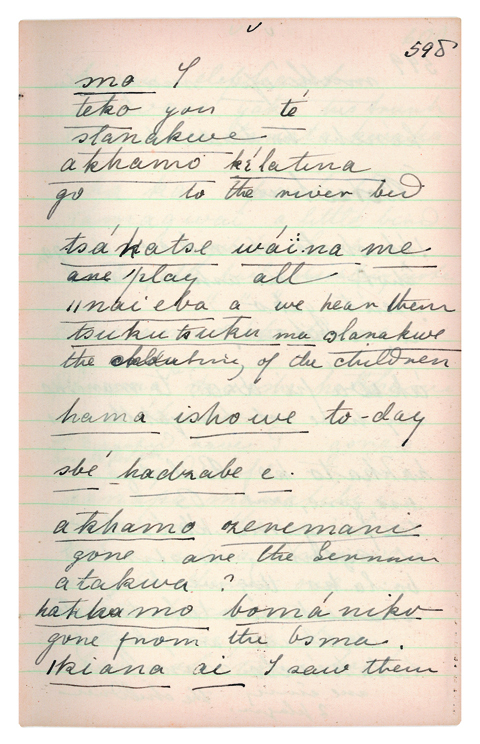 598
mo I
teko you té
slanakwe
akhamo kélatina
go to the river bed
tsákatse wáïna me
are play all
nai eba a we hear them
tsukutsuku ma olanakwe
the of the children
hama ishowe to-day
sbé hadzabe e.
akhamo zeremani
gone are the German
atakwa ?
hakkamo bomá niko
gone from the boma.
kiana ai I saw them